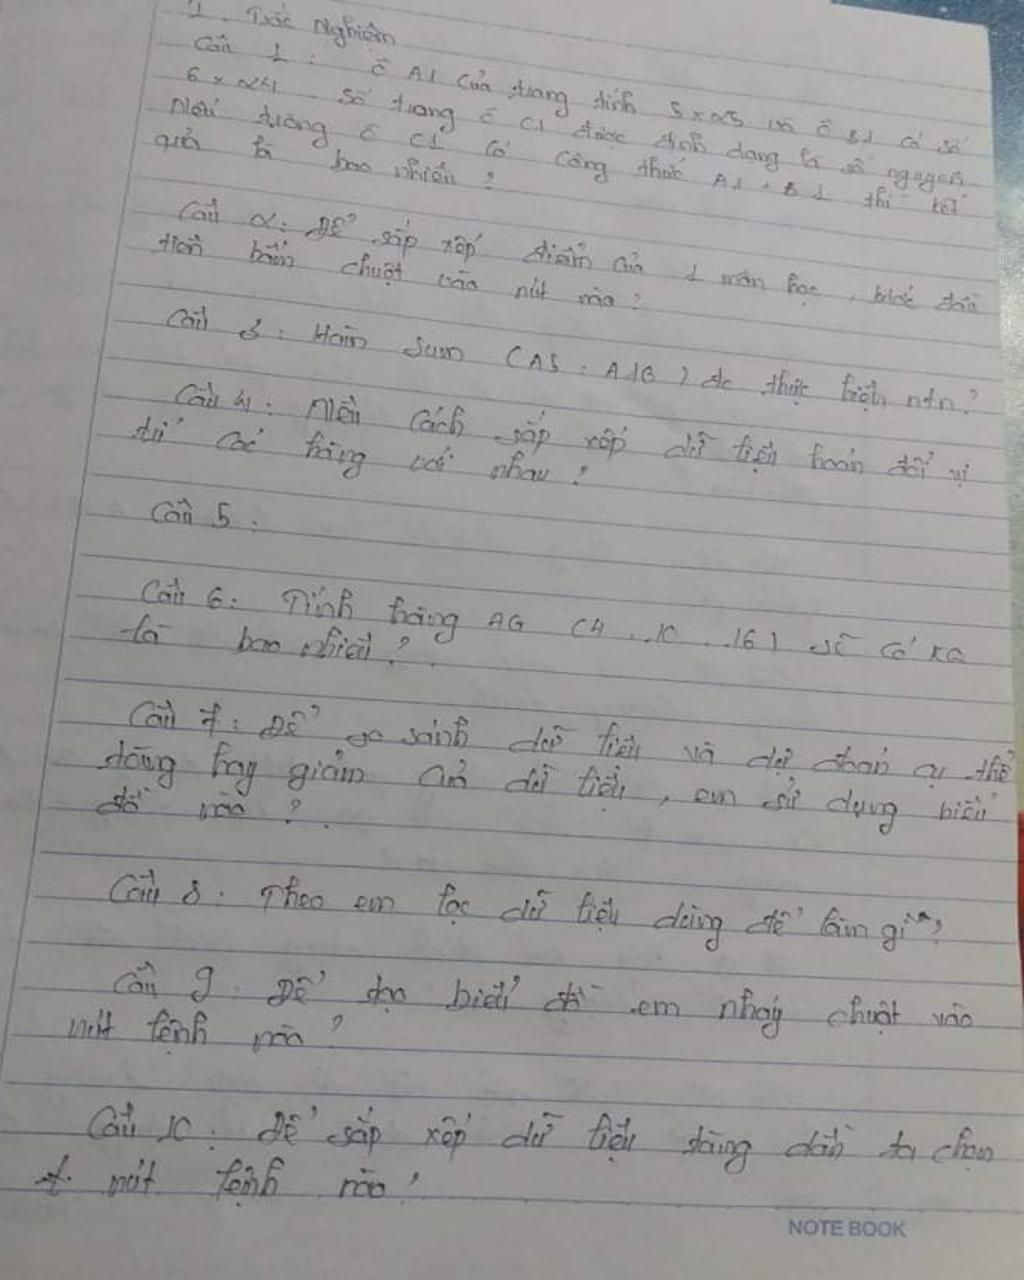 1. Trắc Nghiệm
Câu 1 : ô A1 của trang tính 5 x 25 và ô B1 có số
6 x 24. Số trong ô C1 được định dạng là số nguyên
Nếu trong ô C1 có công thức A1 + B1 thì kết
quả là bao nhiêu ?
Câu 2 : Để sắp xếp điểm của 1 môn học, bước đầu
tiên bấm chuột vào nút nào ?
Câu 3 : Hàm Sum (A5 : A10) đc thực hiện ntn ?
Câu 4 : Nêu cách sắp xếp dữ liệu hoán đổi vị
trí các hàng với nhau ?
Câu 5 :
Câu 6 : Tính hàng AG (4 , 10 , 16) sẽ có KQ
là bao nhiêu ?
Câu 7 : Để so sánh dữ liệu và dự đoán cụ thể
tăng hay giảm của dữ liệu, em sử dụng biểu
đồ nào ?
Câu 8 : Theo em lọc dữ liệu dùng để làm gì ?
Câu 9 : Để tạo biểu đồ em nháy chuột vào
nút lệnh nào ?
Câu 10 : Để sắp xếp dữ liệu tăng dần ta chọn
nút lệnh nào ?
NOTE BOOK